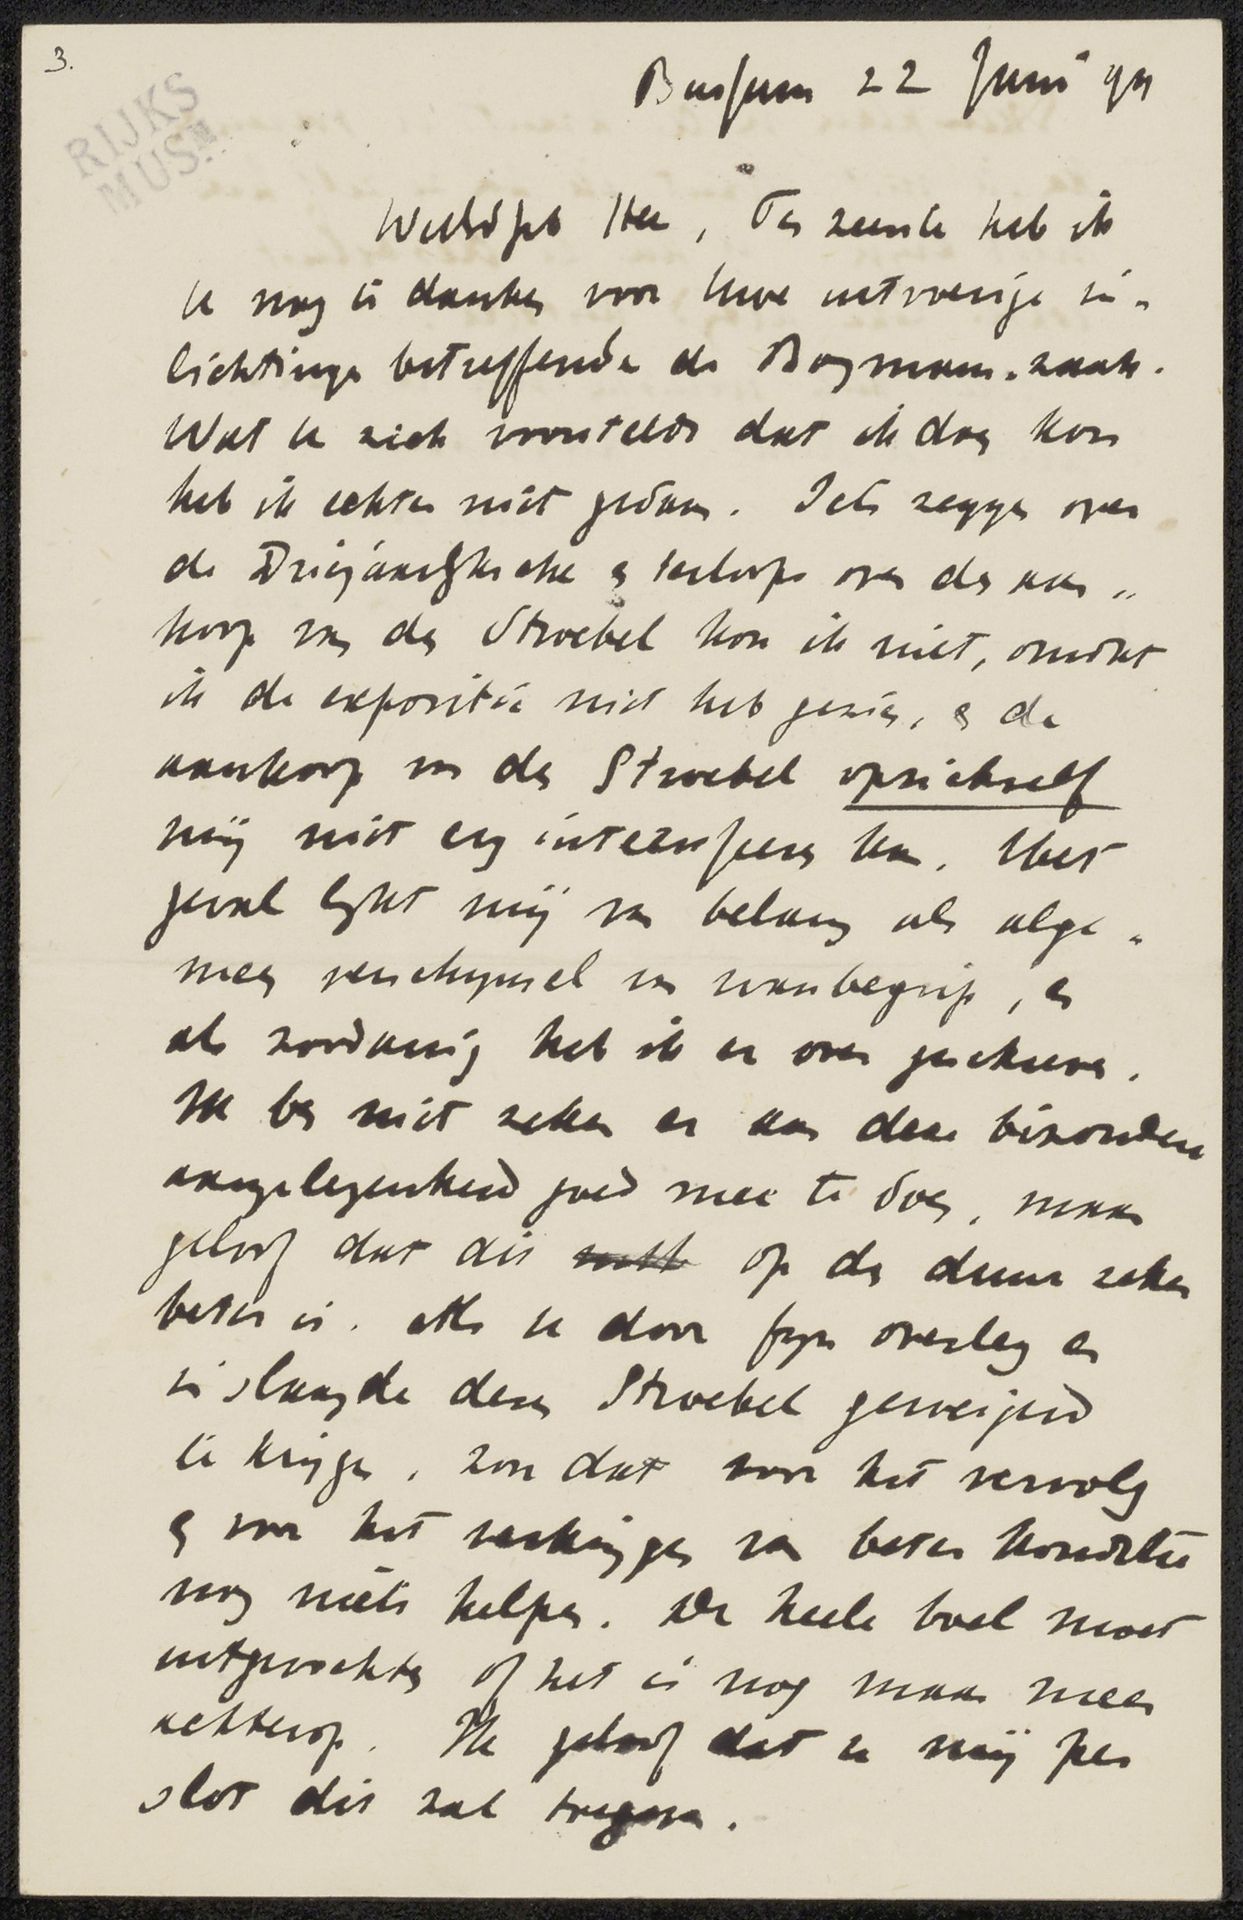 3.
RIJKS
MUSM
Bussum 22 Juni 94
WelEdGeb Heer, Ten zeerste heb ik
U nog te danken voor Uwe uitvoerige in-
lichtingen betreffende de Boymans-zaak.
Wat U zich voorstelde dat ik doen kon
heb ik echter niet gedaan. Iets zeggen over
de Driejaarlijksche en terloops over den aan-
koop van den Stroebel kon ik niet, omdat
ik de expositie niet heb gezien, en de
aankoop van den Stroebel opzichzelf
mij niet erg interesseeren kan. Het
geval lijkt mij van belang als alge-
meen verschijnsel van wanbegrip, en
als zoodanig heb ik er over geschreven.
Ik ben niet zeker er aan deze bizondere
aangelegenheid goed mee te doen, maar
geloof dat dit op den duur zeker
beter is. Als U door fijn overleg er
in slaagde dezen Stroebel geweigerd
te krijgen, zou dat voor het vervolg
en voor het verkrijgen van beter konditie
nog niets helpen. De heele boel moet
uitgevochten of het is nog maar meer
achterop. Ik geloof dat U mij per
slot dit zal